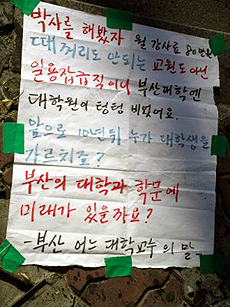 박사를 해봤자 월 강사료 80만원
대꺼리도 안되는 교원도 아닌
일용잡급직이니 부산대학엔
대학원이 텅텅 비었어요.
앞으로 10년뒤 누가 대학생을
가르치죠?
부산의 대학과 학문에
미래가 있을까요?
-부산 어느 대학교수의 말